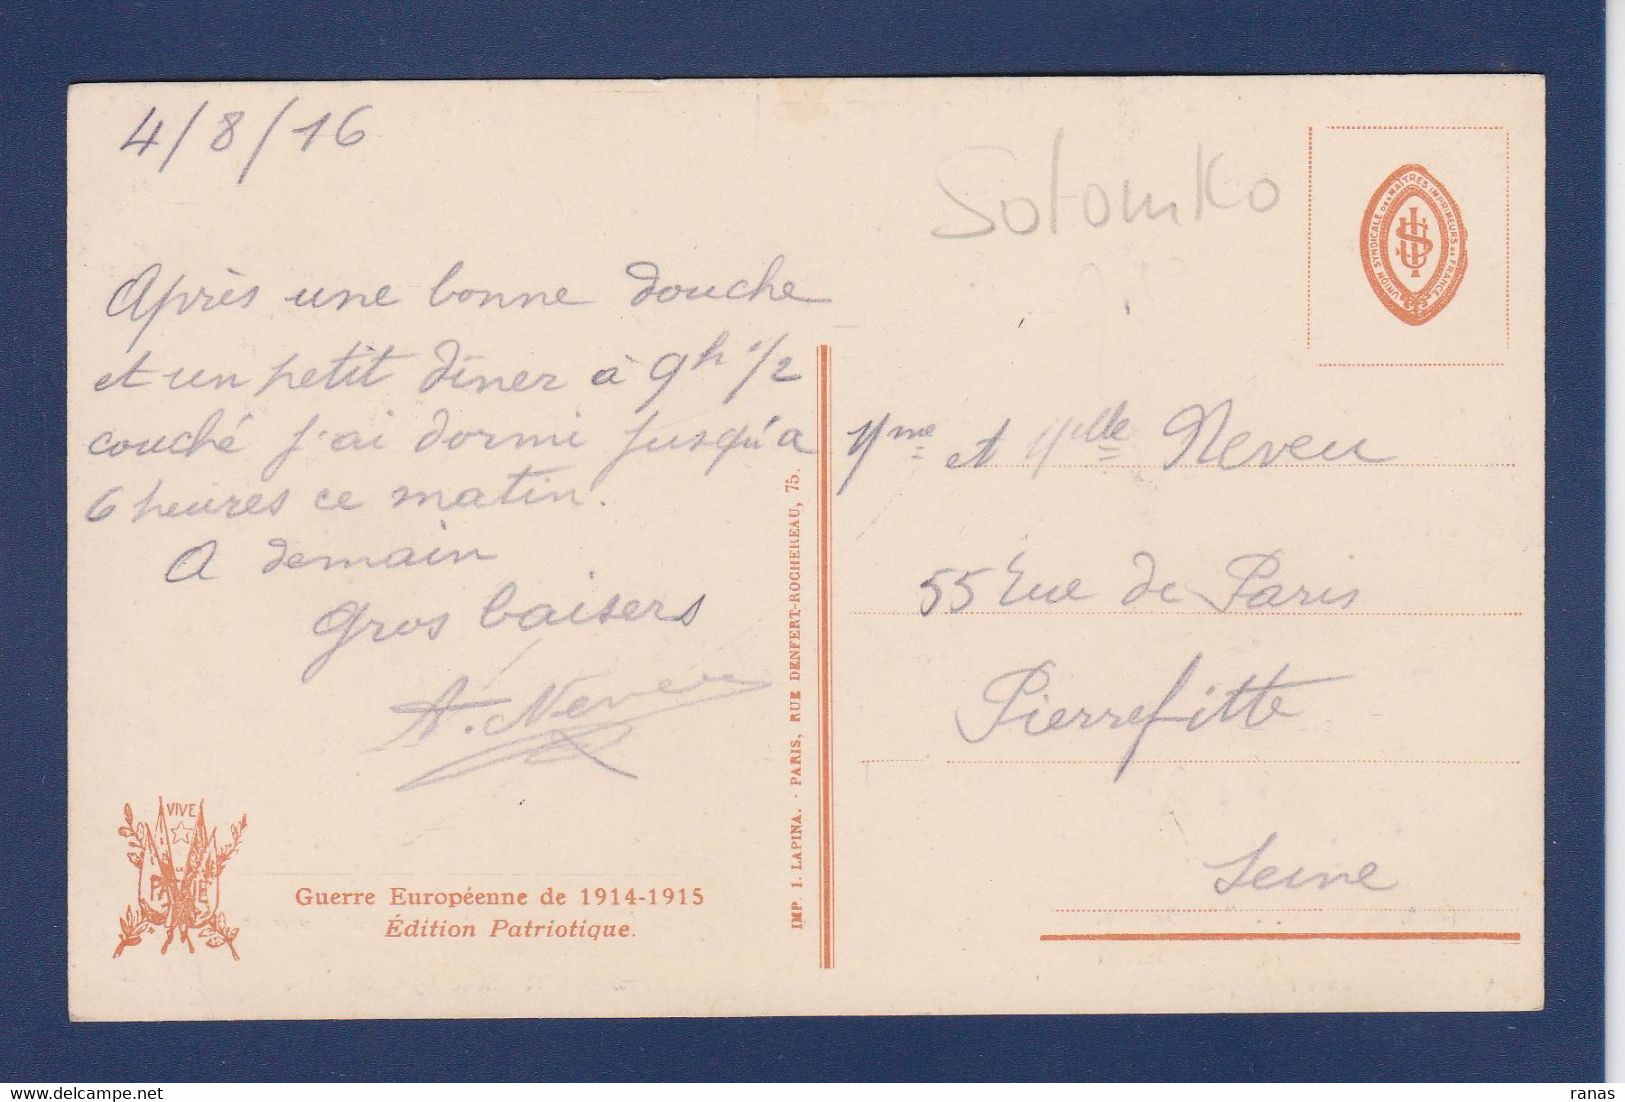 4/8/16
Après une bonne douche
et un petit dîner à 9h 1/2
couché j'ai dormi jusqu'à
6 heures ce matin.
A demain
gros baisers
A. Neveu
VIVE
PATRIE
Guerre Européenne de 1914-1915
Édition Patriotique.
IMP. I. LAPINA. - PARIS, RUE DENFERT-ROCHEREAU, 75.
Solomko
UNION SYNDICALE DES MAITRES IMPRIMEURS DE FRANCE
Mme et Mlle Neveu
55 Rue de Paris
Pierrefitte
Seine
ranas